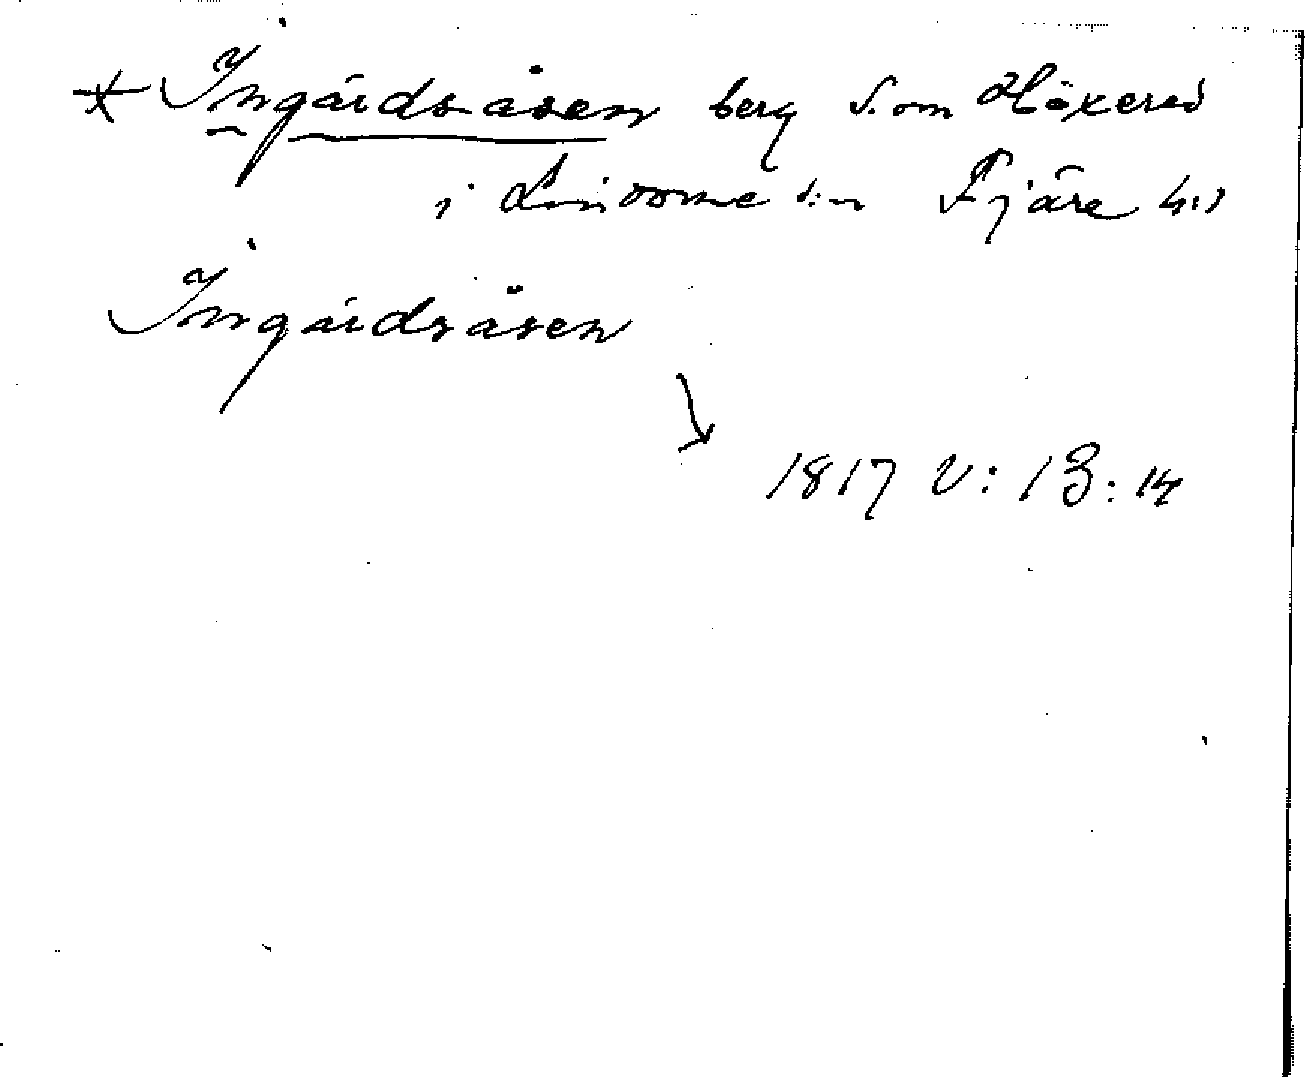 * Ingärdsåsen berg S. om Häxered
i Lindome sn Fjäre hd
Ingärdsåsen
1817 V: 13: 14